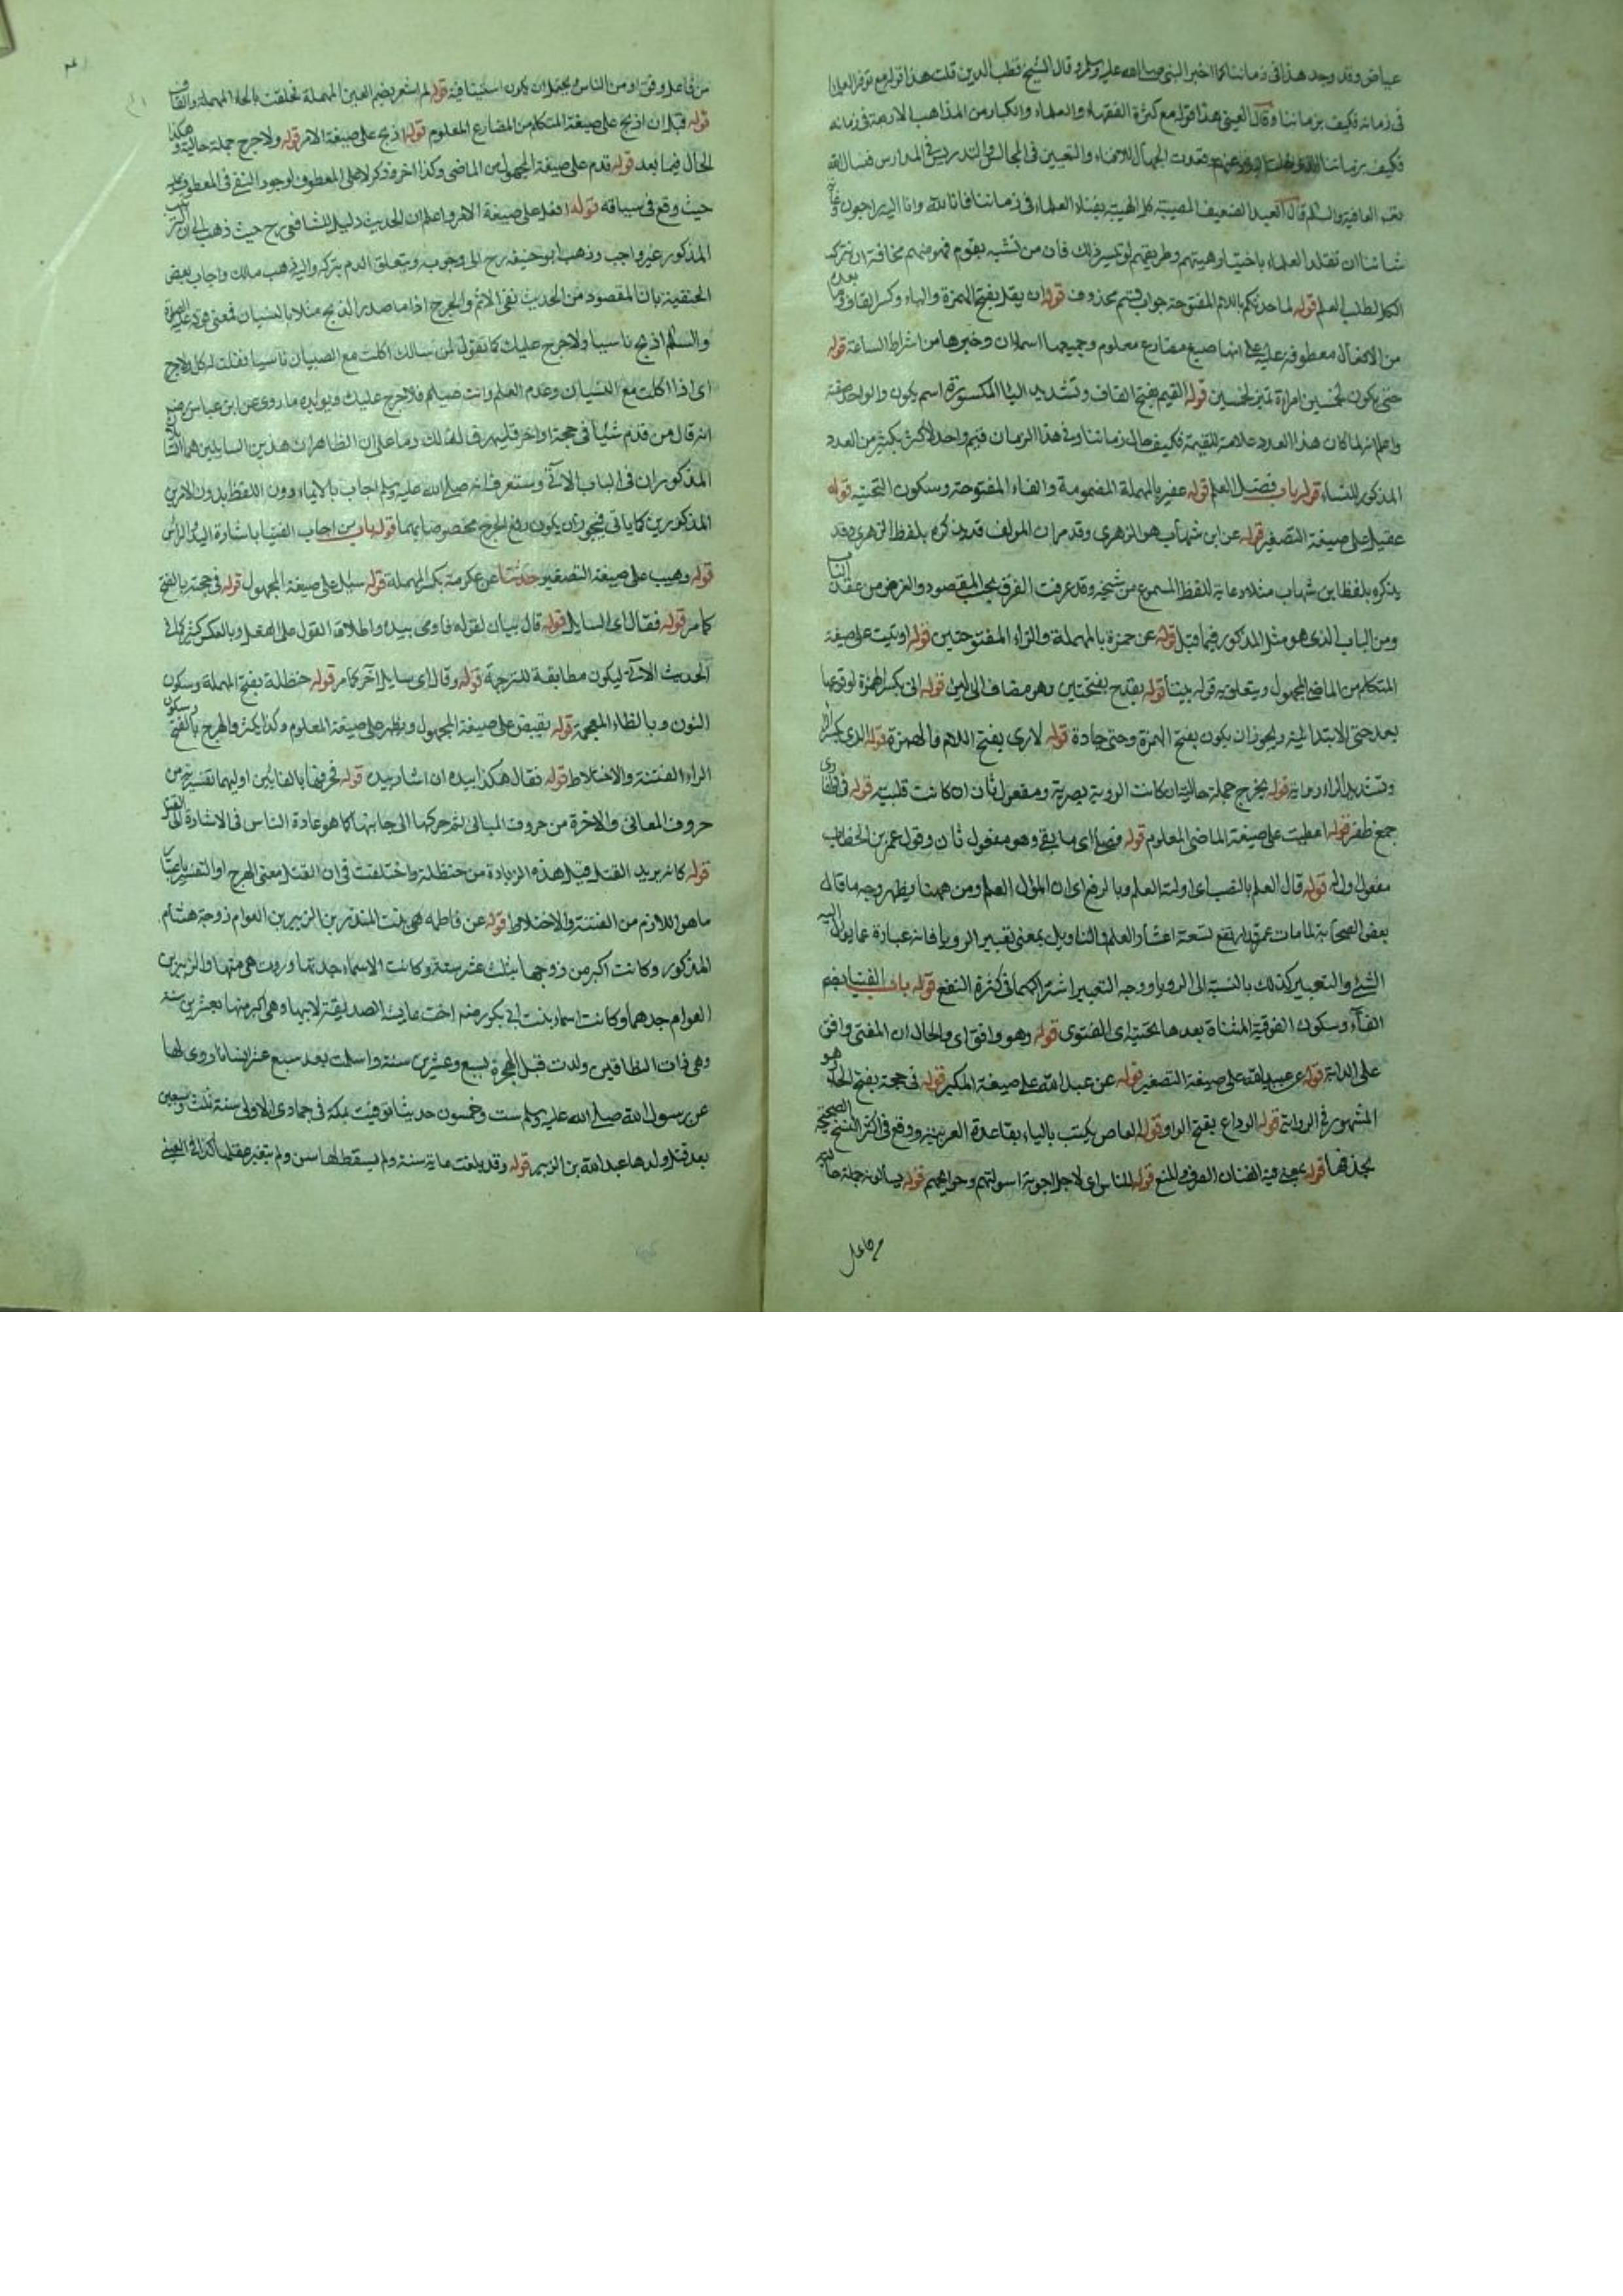 عياض وقد وجد هذا فى زماننا كما اخبر النبى صلى الله عليه وسلم وقال الشيخ قطب الدين قلت هذا قوله مع توفر العلماء
فى زمانه فكيف بزماننا وقال العينى هذا قوله مع كثرة الفقهاء والعلماء والكبار من المذاهب الاربعة فى زمانه
فكيف بزماننا الذى خلت البلاد عنهم وتصدرت الجهال للافتاء والتعيين فى المجالس والتدريس فى المدارس فنسال الله
العافية والسلام قال العبد الضعيف المصيبة كل المصيبة بفناء العلماء فى زماننا فانا لله وانا اليه راجعون
شاننا ان نقلد العلماء باختيار هيبتهم وطريقهم لو تيسر ذلك فان من تشبه بقوم فهو منهم مخافة ان نترك
الكل لطلب العلم قوله لما حدثكم باللام المفتوحة جواب قسم محذوف قوله ان يقل بفتح الهمزة والياء وكسر القاف وما بعده
من الافعال معطوفة عليه على انها صيغ مضارع معلوم وجميعها اسم ان وخبرها من اشراط الساعة قوله
حتى يكون لخمسين امراة تميز لخمسين قوله القيم بفتح القاف وتشديد الياء المكسورة اسم يكون والواحد صفة
واعلم انه لما كان هذا العدد علامة للقيمة فكيف حال زماننا وفى هذا الزمان قيم واحد لاكثر بكثير من العدد
المذكور للنساء قوله باب فضل العلم قوله عفير بالمهملة المضمومة والفاء المفتوحة وسكون التحتية قوله
عقيل على صيغة التصغير قوله عن ابن شهاب هو الزهرى وقد مر ان المولف قد يذكره بلفظ الزهرى وقد
يذكره بلفظ ابن شهاب مثلا رعاية للفظ المسموع من شيخه وقد عرفت الفرق بحسب المقصود والغرض من عقد الباب
ومن الباب الذى هو مثل المذكور فيما قبل قوله عن حمزة بالمهملة والزاء المفتوحتين قوله اوتيت على صيغة
المتكلم من الماضى المجهول ويتعلق به قوله بينا قوله بقدح بفتحتين وهو مضاف الى لبن قوله انى بكسر الهمزة لوقوعها
بعد حتى الابتدائية ويجوز ان يكون بفتح الهمزة وحتى جادة قوله لارى بفتح اللام فالهمزة قوله الرى بكسر الراء
وتشديد الراء رماية قوله يخرج جملة حالية ان كانت الروية بصرية ومفعول ثان ان كانت قلبية قوله فى اظفارى
جمع ظفر قوله اعطيت على صيغة الماضى المعلوم قوله فضلى اى ما بقى وهو مفعول ثان وقوله عمر بن الخطاب
مفعول اوله قوله قال العلم بالنصب اى اولته العلم وبالرفع اى ان المؤل العلم ومن ههنا يظهر وجه ما قال
بعض الصحابة لما مات عمر قد ارتفع تسعة اعشار العلم والتاويل بمعنى تعبير الرويا فانه عبارة عما يول اليه
الشئ والتعبير كذلك بالنسبة الى الرويا ووجه التعبير اشتراكهما فى كثرة النفع قوله باب الفتيا بضم
الفاء وسكون الفوقية المثناة بعدها تحتية اى الفتوى قوله وهو واقف اى والحال ان المفتى واقف
على الدابة قوله عن عبيد الله على صيغة التصغير قوله عن عبد الله على صيغة المكبر قوله فى حجة بفتح الحاء هو
المشهور فى الرواية قوله الوداع بفتح الواو قوله العاص يكتب بالياء بقاعدة العربية ووقع فى اكثر النسخ الصحيحة
بحذفها قوله للناس اى لاجل اجوبة اسولتهم وحوايجهم قوله يسالونه جملة حالية
من فاعل وقف او من الناس ويحتمل ان يكون استينافية قوله لم اشعر بضم العين المهملة فحلقت بالحاء المهملة والقاف
قوله قبل ان اذبح على صيغة المتكلم من المضارع المعلوم قوله اذبح على صيغة الامر قوله ولا حرج جملة حالية وهكذا
الحال فيما بعد قوله قدم على صيغة المجهول من الماضى وكذا اخر وذكر لا على المعطوف لوجود النفى فى المعطوف عليه
حيث وقع فى سياقه قوله افعل على صيغة الامر واعلم ان الحديث دليل للشافعى رح حيث ذهب الى ان الترتيب
المذكور غير واجب وذهب ابو حنيفة رح الى وجوبه ويتعلق الدم بتركه واليه ذهب مالك واجاب بعض
الحنفية بان المقصود من الحديث نفى الاثم والحرج اذا ما صدر الذبح مثلا بالنسيان فمعنى قوله عليه الصلوة
والسلام اذبح ناسيا ولا حرج عليك كما تقول لمن سالك اكلت مع الصيام ناسيا فقلت له كل ولا حرج
اى اذا اكلت مع النسيان وعدم العلم وانت صيام فلا حرج عليك ويؤيده ما روى عن ابن عباس رضى
انه قال من قدم شيئا فى حجة او اخر فليهرق لذلك دما على ان الظاهر ان هذين السايلين هما
المذكوران فى الباب الآتى وستعرف انه صلى الله عليه وسلم اجاب بالايماء دون اللفظ بدون الامرين
المذكورين كما ياتى فيجوز ان يكون رفع الحرج مخصوصا بهما قوله باب من اجاب الفتيا باشارة اليد والراس
قوله وهيب على صيغة التصغير حدثنا عن عكرمة بكسر المهملة قوله سئل على صيغة المجهول قوله فى حجته بالفتح
كما مر قوله فقال اى السايل قوله قال بيان لقوله فاومى بيده واطلاق القول على الفعل وبالعكس كثير كما فى
الحديث الآتى ليكون مطابقة للترجمة قوله وقال اى سايل اخر كما مر قوله حنظلة بفتح المهملة وسكون
النون وبالظاء المعجمة قوله يقبض على صيغة المجهول ويظهر على صيغة المعلوم وكذا يكثر والهرج بالفتح وسكون
الراء الفتنة والاختلاط قوله فقال هكذا بيده ان اشار بيده قوله فحرفها بالفائين اوليهما تفسيرية من
حروف المعانى والاخرة من حروف المبانى اى ثم حركها الى جانبها كما هو عادة الناس فى الاشارة الى القتل
قوله كانه يريد القتل قيل هذه الزيادة من حنظلة واختلفت فى ان القتل معنى الهرج او التفسير باعتبار
ما هو اللازم من الفتنة والاختلاط قوله عن فاطمة هى بنت المنذر بن الزبير بن العوام زوجة هشام
المذكور وكانت اكبر من زوجها بثلث عشر سنة وكانت الاسماء جدتها وروت هى منها والزبير بن
العوام جدهما وكانت اسماء بنت ابى بكر رضه اخت عايشة الصديقة لابيها وهى اكبر منها بعشرين سنة
وهى ذات النطاقين ولدت قبل الهجرة بسبع وعشرين سنة واسلمت بعد سبع عشر انسانا روى لها
عن رسول الله صلى الله عليه وسلم ست وخمسون حديثا توفيت بمكة فى جمادى الاولى سنة ثلث وسبعين
بعد قتل ولدها عبد الله بن الزبير قوله وقد بلغت ماية سنة ولم يسقط لها سن ولم يتغير عقلها كذا فى العينى
من فاعل